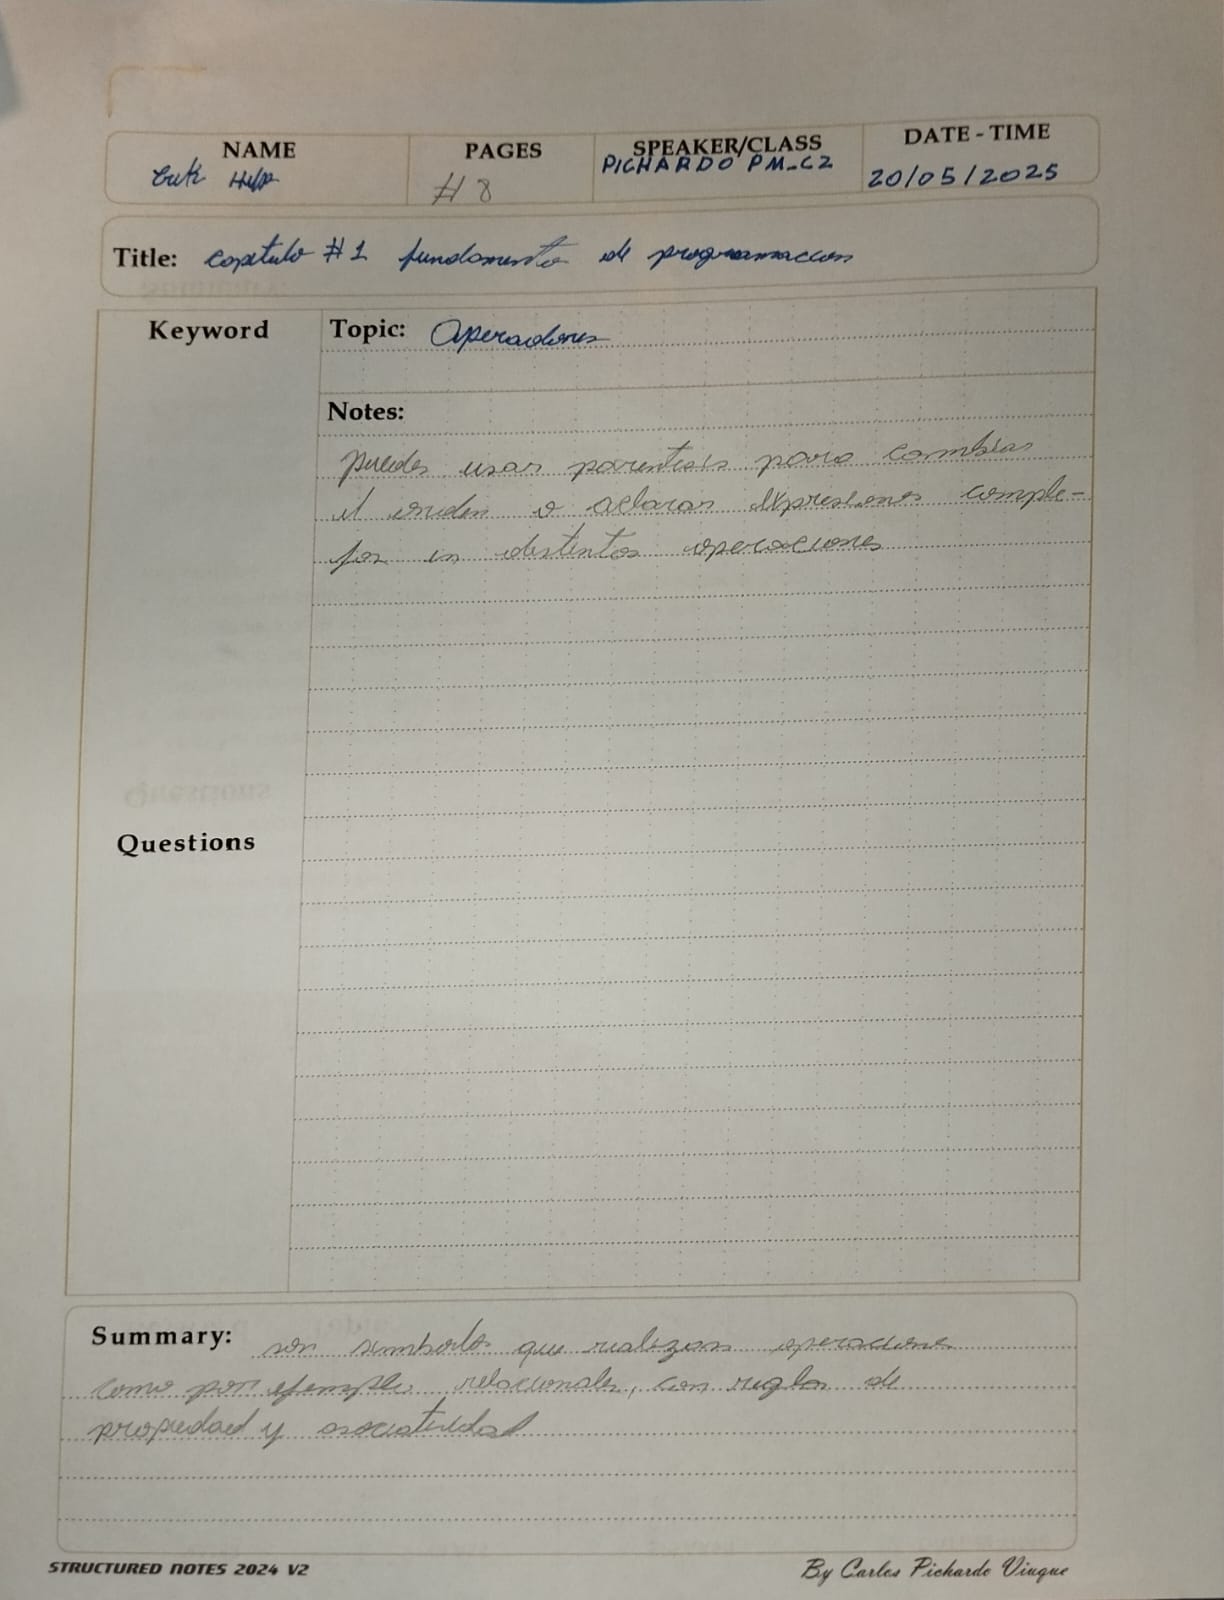 NAME PAGES SPEAKER/CLASS DATE - TIME
Help # 8 PICHARDO PM_C2 20/05/2025
Title: capitulo #1 fundamento de programacion
Keyword
Topic: Operadores
Notes:
puedes usar parentesis para cambiar
el orden o aclarar expresiones comple-
jas en distintas operaciones
Questions
Summary: son simbolos que realizan operaciones
como por ejemplo relacionales, con reglas de
propiedad y asociatividad
STRUCTURED NOTES 2024 V2 By Carlos Pichardo Viuque